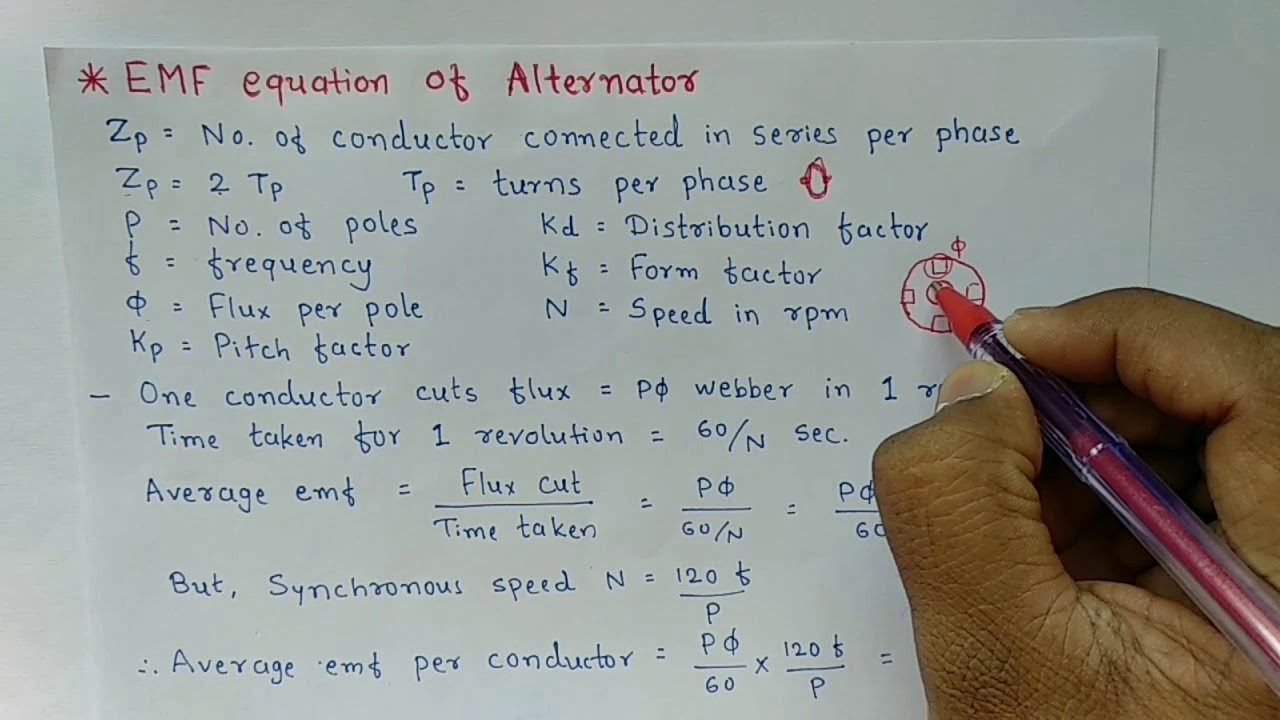 * EMF equation of Alternator
Zp = No. of conductor connected in series per phase
Zp = 2 Tp Tp = turns per phase
P = No. of poles Kd = Distribution factor
f = frequency Kf = Form factor
ϕ
Φ = Flux per pole N = Speed in rpm
Kp = Pitch factor
- One conductor cuts flux = Pϕ webber in 1
Time taken for 1 revolution = 60/N sec.
Average emf = Flux cut / Time taken = Pϕ / 60/N = Pϕ / 60
But, Synchronous speed N = 120 f / P
∴ Average emf per conductor = Pϕ / 60 × 120 f / P =